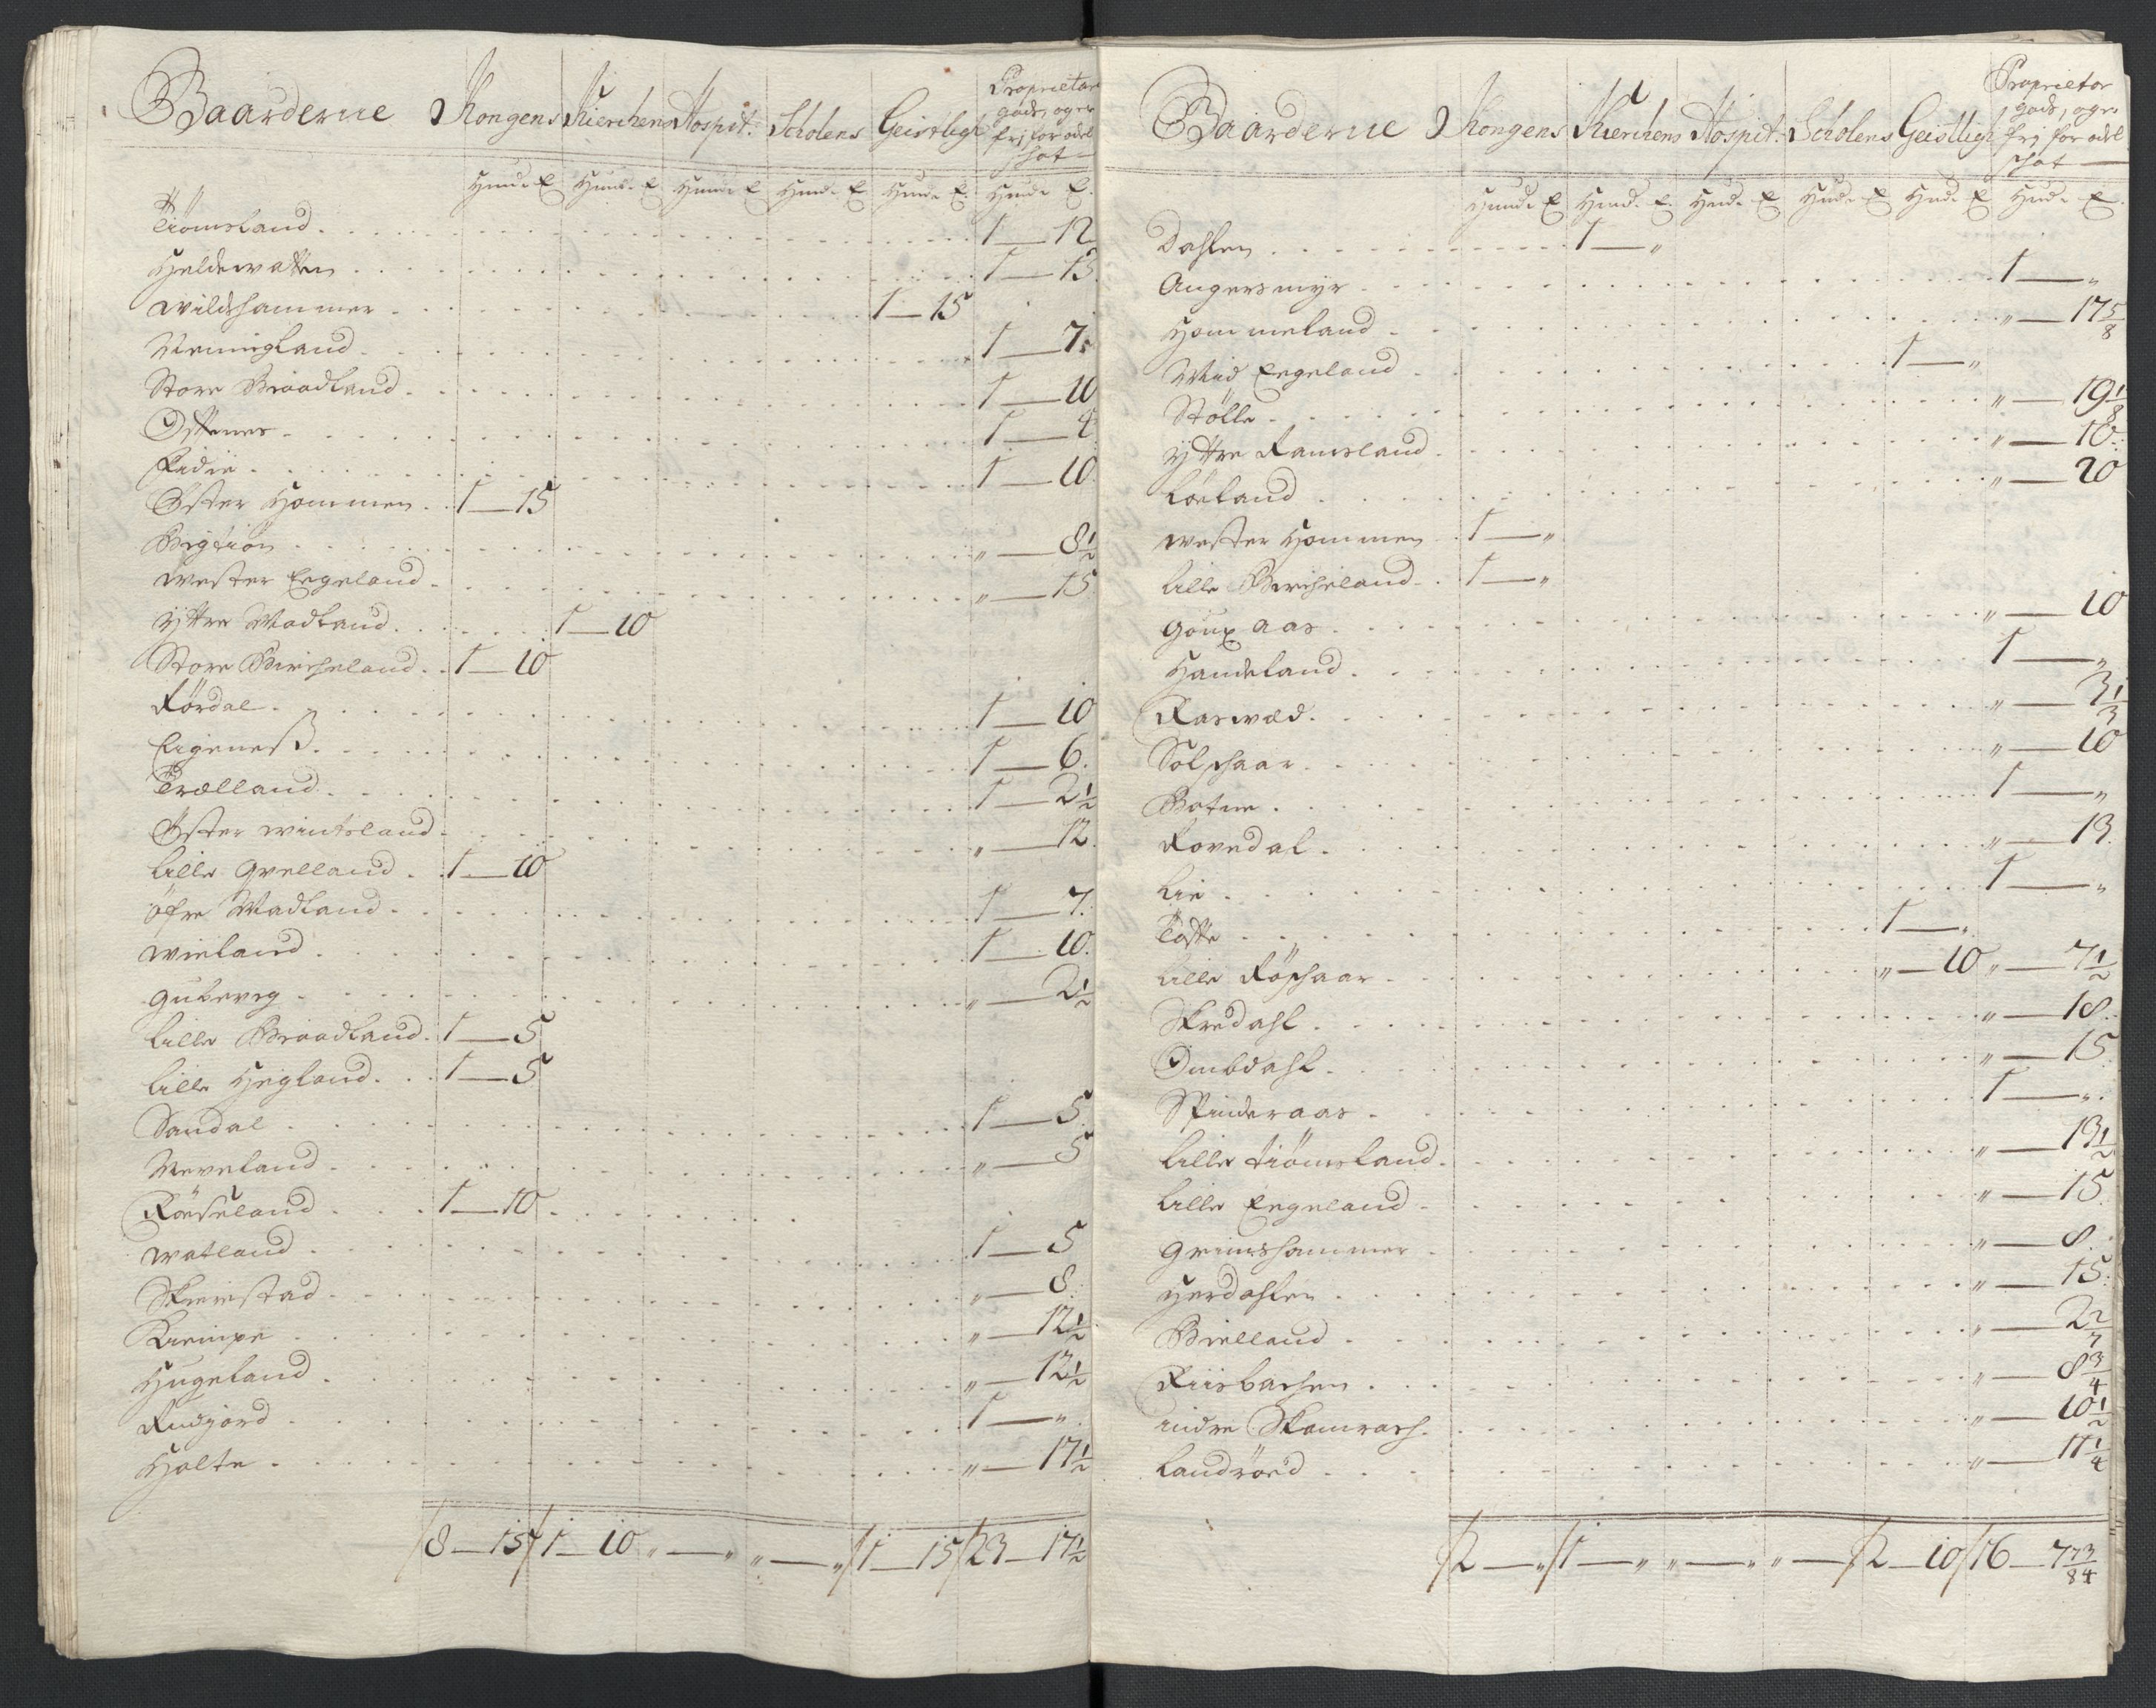 Gaarderne Kongens Kierchens Hospit: Scholens Geistligh Proprietar
gods, og er
fri for odel
schat
Hunde E Hund. E Hunde E Hund. E Hund. E Hude E.
Tiömsland 1 — 12
Heldewatten 1 — 13
Wildshammer 1 — 15
Meningland 1 — 7.
Store Braadland 1 — 10
Ottenes 1 — 4
Fidie 1 — 10.
Öster Hommen 1 — 15
Birgtion " — 8½
Wester Eegeland " — 15.
Yttre Madland 1 — 10
Store Bircheland 1 — 10
Rördal 1 — 10
Eigeneß 1 — 6.
Trælland 1 — 2½
Öster Wintsland " — 12.
Lille Qvelland 1 — 10
Öfre Madland 1 — 7.
Wieland 1 — 10.
Gulevog " — 2½
Lille Braadland 1 — 5
Lille Hegland 1 — 5
Sandal 1 — 5.
Meveland " — 5
Röeseland 1 — 10
Watland 1 — 5
Skreistad " — 8.
Kiempe " — 12½
Hugeland " — 12½
Rudjord 1 — "
Holte " — 17½
8 — 15 1 — 10 " — " " — " 1 — 15 23 — 17½
Gaarderne Kongens Kierchens Hospit: Scholens Geistligh Proprietar
gods, og er
fri for odel
schat
Hunde E Hund. E Hud. E Hud. E Hud. E Hud. E
Dahlen 1 — "
Angersmyr 1 — "
Hommeland " — 17 5/8
Mid Eegeland 1 — "
Stölle " — 19 1/8
Yttre Ramsland " — 10.
Löeland " — 20
Wester Hommen 1 — "
Lille Bircheland 1 — "
Goupaas " — 10
Handeland 1 — "
Raswæd " — 3 1/3
Solschaar " — 10
Botne 1 — "
Rovedal " — 13.
Lie 1 — "
Tötte 1 — "
Lille Röschaar " — 10 " — 7½
Skredahl " — 18.
Ombdahl " — 15.
Skinderaas 1 — "
Lille Tiömsland " — 13½
Lille Eegeland " — 15.
Grimshammer " — 8.
Herdahlen " — 15.
Bielland " — 2 2/7
Riisbachen " — 8 3/4
indre Skamrach " — 10½
Landröed " — 11 1/4
2 — " 1 — " " — " " — 2 — 10 16 — 7 73/84